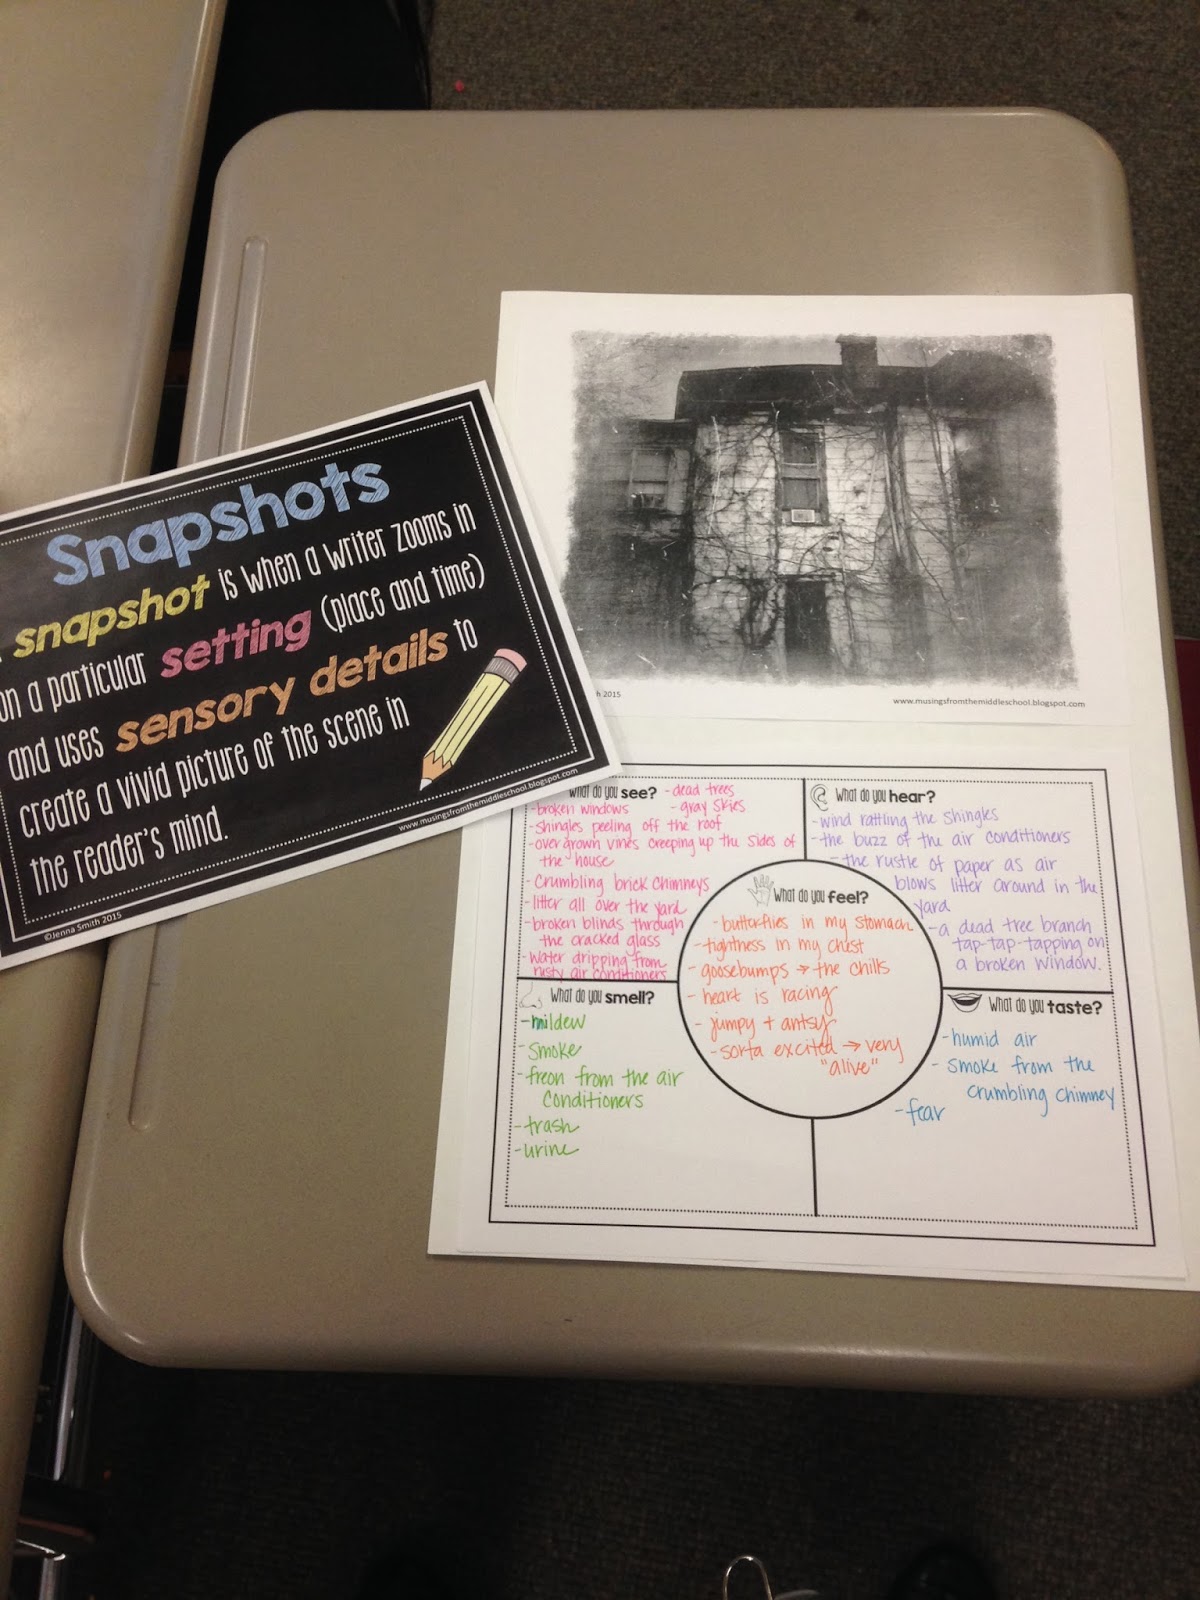 Snapshots
snapshot is when a writer zooms in
on a particular setting (place and time)
and uses sensory details to
create a vivid picture of the scene in
the reader's mind.
www.musingsfromthemiddleschool.blogspot.com
©Jenna Smith 2015
2015
www.musingsfromthemiddleschool.blogspot.com
What do you see?
- dead trees
- broken windows
- gray skies
- shingles peeling off the roof
- overgrown vines creeping up the sides of
the house
- crumbling brick chimneys
- litter all over the yard
- broken blinds through
the cracked glass
- water dripping from
rusty air conditioners
What do you hear?
- wind rattling the shingles
- the buzz of the air conditioners
- the rustle of paper as air
blows litter around in the
yard
- a dead tree branch
tap-tap-tapping on
a broken window.
What do you feel?
- butterflies in my stomach
- tightness in my chest
- goosebumps → the chills
- heart is racing
- jumpy + antsy
- sorta excited → very
"alive"
What do you smell?
- mildew
- smoke
- freon from the air
conditioners
- trash
- urine
What do you taste?
- humid air
- smoke from the
crumbling chimney
- fear